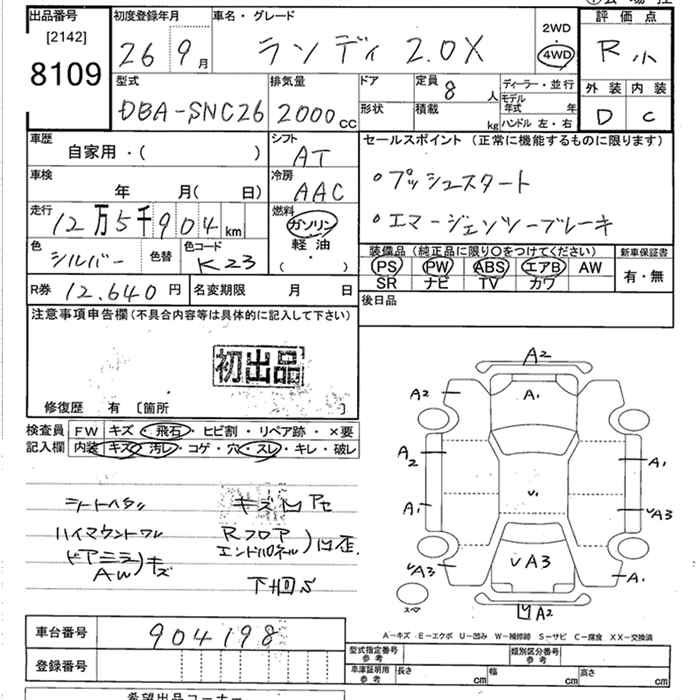 出品番号 初度登録年月 車名・グレード 評価点
[2142]
8109
26 9月 ランディ 2.0X 2WD 4WD R小
型式 排気量 ドア 定員 8 人 ディーラー・並行 外装 内装
DBA-SNC26 2000cc 形状 積載 kg モデル年式 年 D C
ハンドル 左・右
車歴 シフト セールスポイント (正常に機能するものに限ります)
自家用・( ) AT
車検 冷房 ○プッシュスタート
年 月( 日) AAC
走行 燃料 ○エマージェンシーブレーキ
12万5千904km ガソリン
色 色替 色コード 軽油 装備品 (純正品に限り○をつけてください) 新車保証書
シルバー K23 ( ・ ) PS PW ABS エアB AW 有・無
SR ナビ TV カワ
R券 12,640円 名変期限 月 日 後日品
注意事項申告欄 (不具合内容等は具体的に記入して下さい)
初出品
修復歴 有 〔箇所 〕
検査員 FW キズ・飛石・ヒビ割・リペア跡・×要
記入欄 内装 キズ・汚レ・コゲ・穴・スレ・キレ・破レ
A2
A2 A1
A2 A1
A1 V1 UA3
UA3 UA3 A1
スペア 凹A2
シートヘタリ
ハイマウントワレ
ドアミラー
AW キズ
Rフロア
エンドパネル 凹歪.
下回S
A-キズ E-エクボ U-凹み W-補修跡 S-サビ C-腐食 XX-交換済
車台番号 904198
登録番号
型式指定番号 参考 類別区分番号 参考
車庫証明用 参考 長さ cm 幅 cm 高さ cm
希望出品コーナー